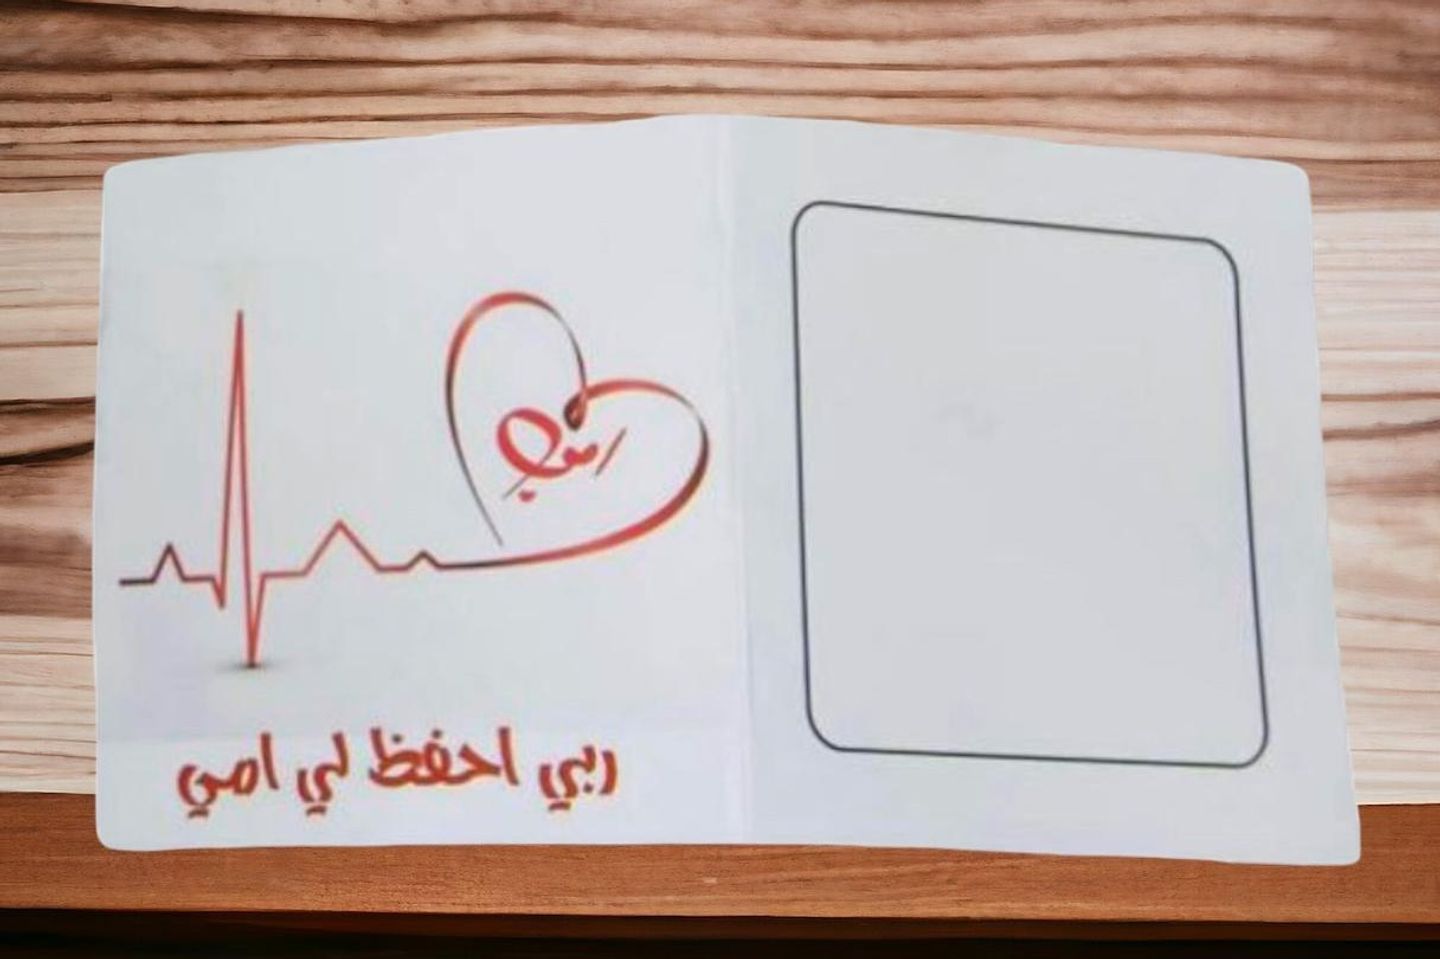 امي
ربي احفظ لي امي